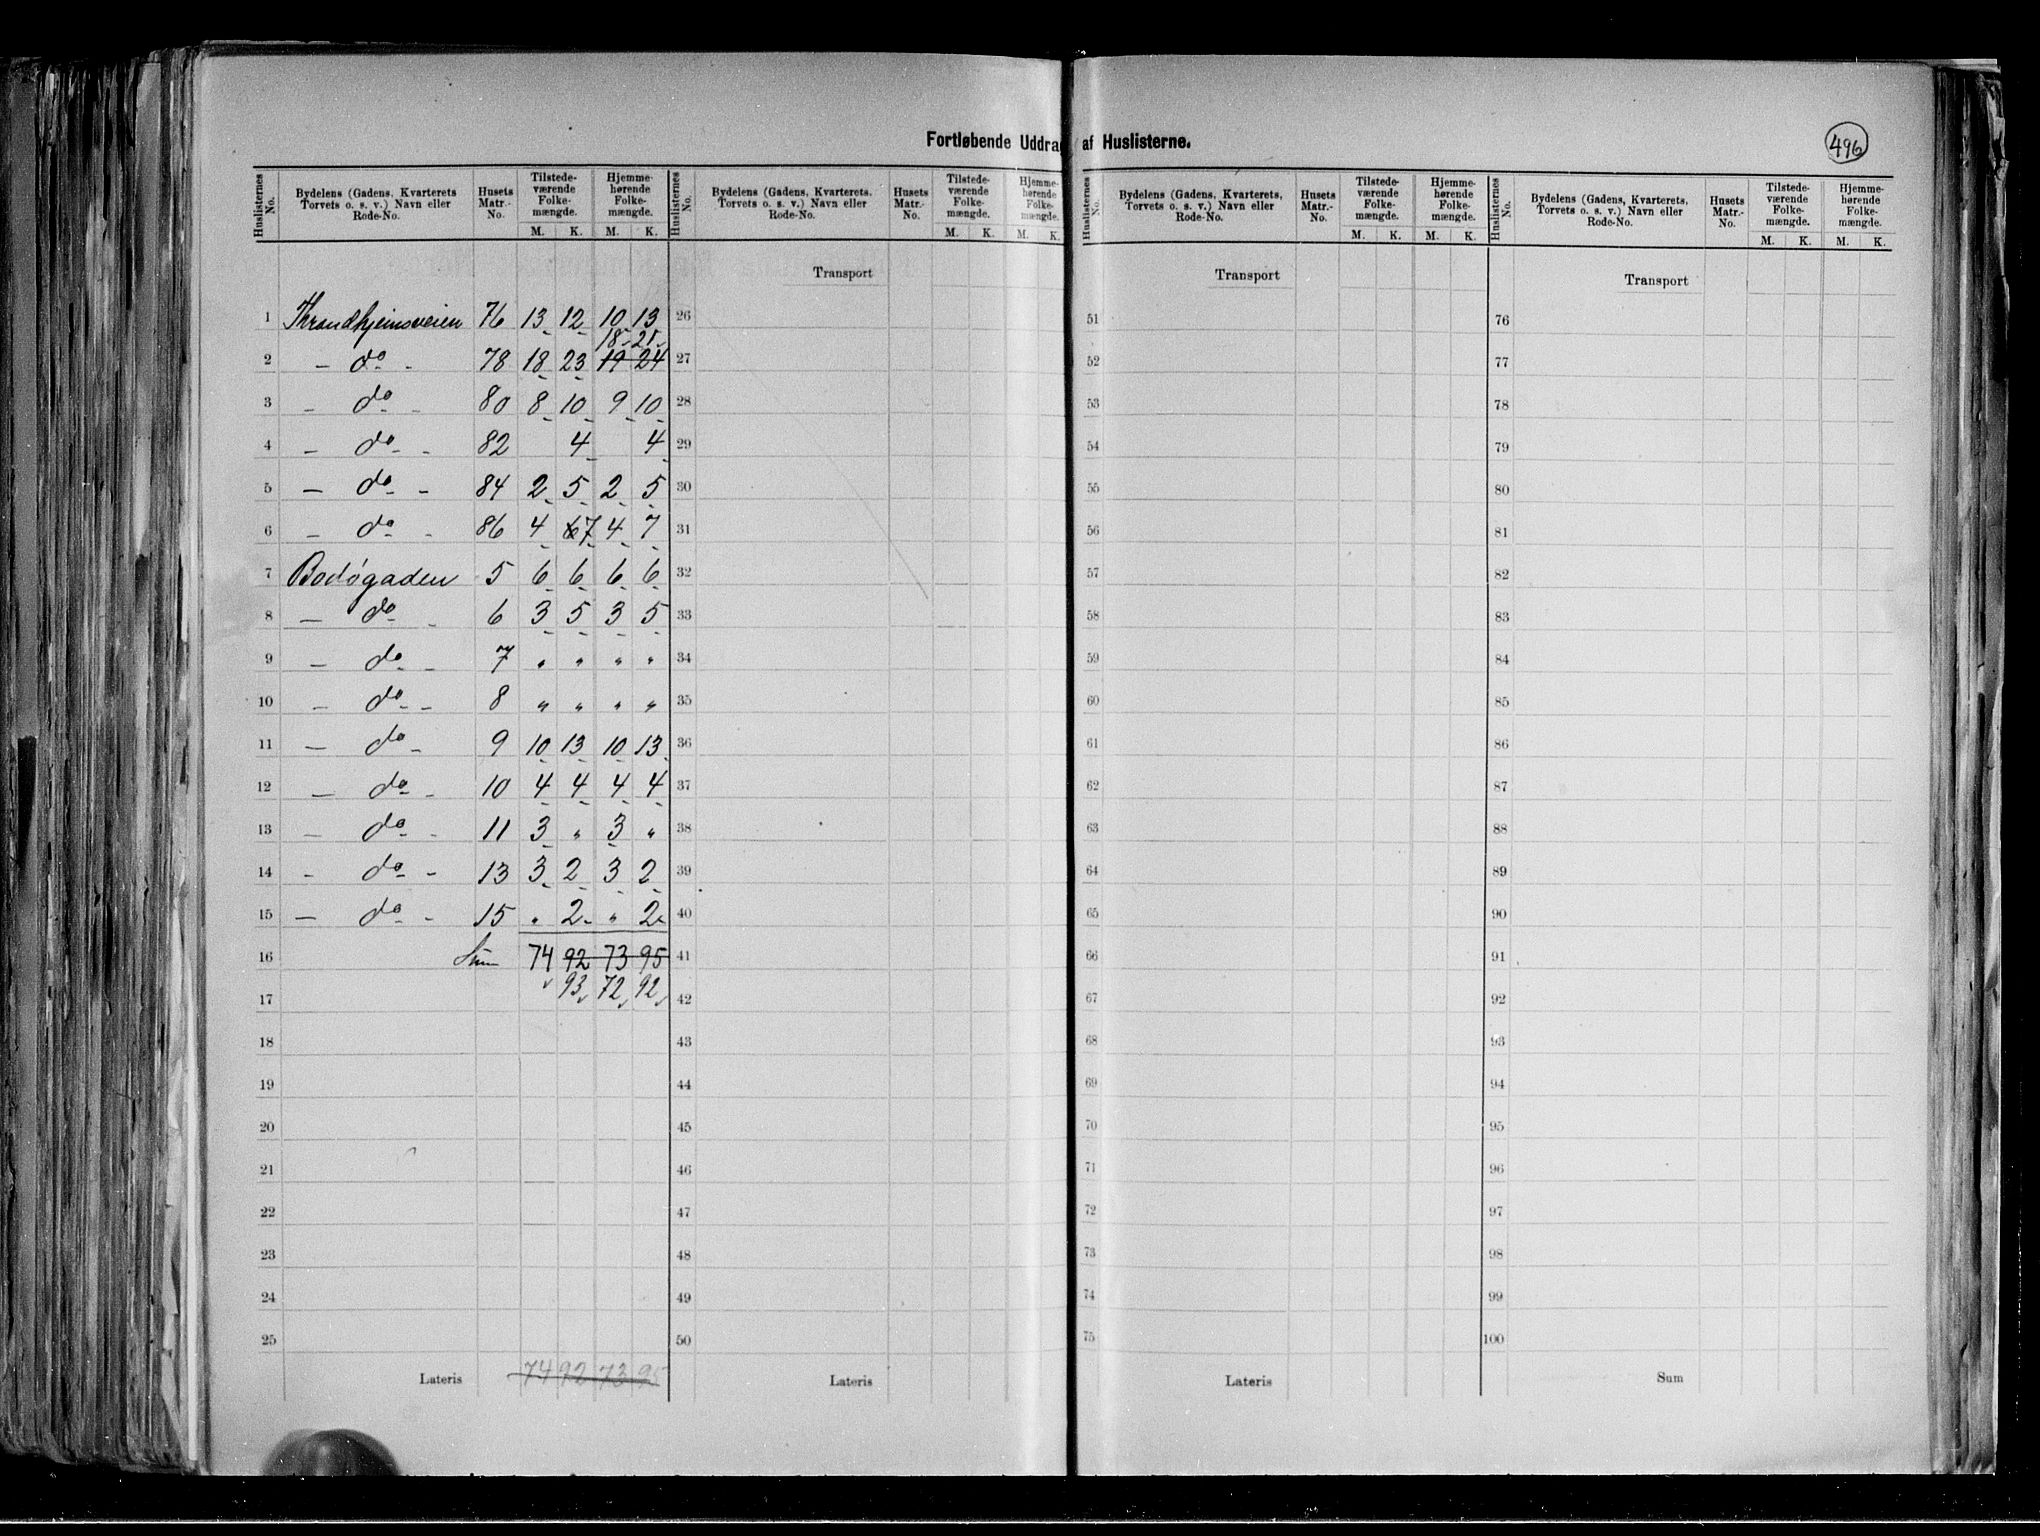 Fortløbende Uddrag af Huslisterne.
496
Huslisternes No. | Bydelens (Gadens, Kvarterets Torvets o. s. v.) Navn eller Rode-No. | Husets Matr.-No. | Tilstedeværende Folkemængde. M. K. | Hjemmehørende Folkemængde. M. K.
1 Throndhjemsveien 76 13 12 10 13
18 21
2 – do - 78 18 23 19 24
3 – do - 80 8 10 9 10
4 – do - 82 4 4
5 – do - 84 2 5 2 5
6 – do - 86 4 6 7 4 7
7 Bodøgaden 5 6 6 6 6
8 – do - 6 3 5 3 5
9 – do - 7 " " " "
10 – do - 8 " " " "
11 – do - 9 10 13 10 13
12 – do - 10 4 4 4 4
13 – do - 11 3 " 3 "
14 – do - 13 3 2 3 2
15 – do - 15 " 2 " 2
16 Sum 74 92 73 95
17 93 72 92
18
19
20
21
22
23
24
25
Lateris 74 92 73 95
Huslisternes No. | Bydelens (Gadens, Kvarterets, Torvets o. s. v.) Navn eller Rode-No. | Husets Matr.-No. | Tilstedeværende Folkemængde. M. K. | Hjemmehørende Folkemængde. M. K.
Transport
26
27
28
29
30
31
32
33
34
35
36
37
38
39
40
41
42
43
44
45
46
47
48
49
50
Lateris
Huslisternes No. | Bydelens (Gadens, Kvarterets, Torvets o. s. v.) Navn eller Rode-No. | Husets Matr.-No. | Tilstedeværende Folkemængde. M. K. | Hjemmehørende Folkemængde. M. K.
Transport
51
52
53
54
55
56
57
58
59
60
61
62
63
64
65
66
67
68
69
70
71
72
73
74
75
Lateris
Huslisternes No. | Bydelens (Gadens, Kvarterets, Torvets o. s. v.) Navn eller Rode-No. | Husets Matr.-No. | Tilstedeværende Folkemængde. M. K. | Hjemmehørende Folkemængde. M. K.
Transport
76
77
78
79
80
81
82
83
84
85
86
87
88
89
90
91
92
93
94
95
96
97
98
99
100
Sum